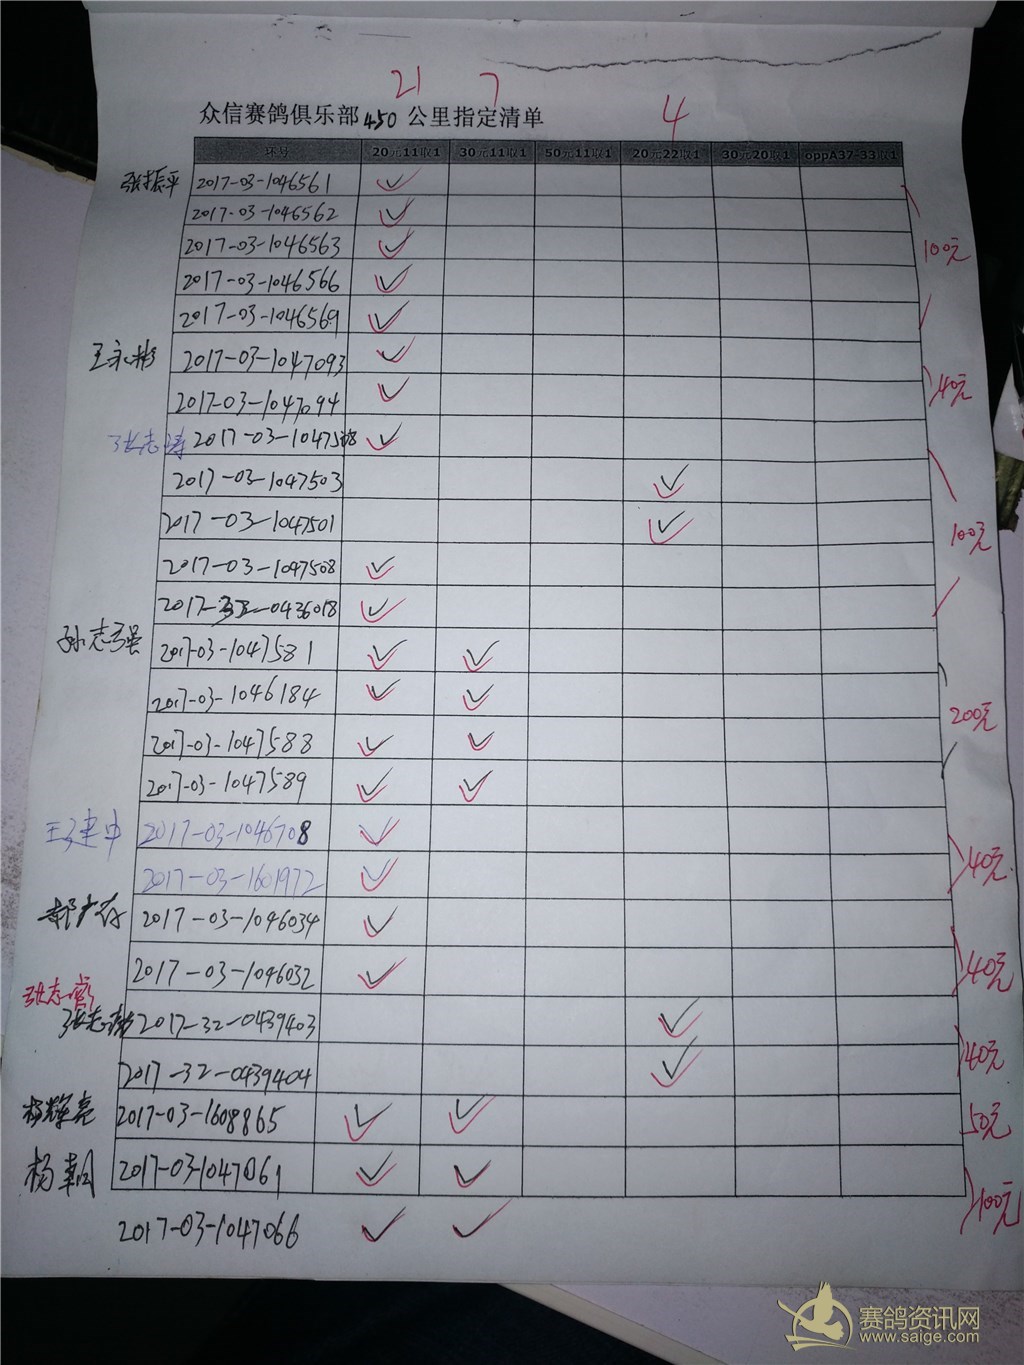 21 7 4
众信赛鸽俱乐部450公里指定清单
环号 20元11取1 30元11取1 50元11取1 20元22取1 30元20取1 oppA37-33取1
张振平 2017-03-1046561 ✓
2017-03-1046562 ✓
2017-03-1046563 ✓ 100元
2017-03-1046566 ✓
2017-03-1046569 ✓
王永彬 2017-03-1047093 ✓
2017-03-1047094 ✓ 40元
张志涛 2017-03-10475 ✓
2017-03-1047503 ✓
2017-03-1047501 ✓ 100元
2017-03-1047508 ✓
2017- -0436018 ✓
孙志强 2017-03-1047581 ✓ ✓
2017-03-1046184 ✓ ✓ 200元
2017-03-1047588 ✓ ✓
2017-03-1047589 ✓ ✓
王建中 2017-03-1046708 ✓ 40元
2017-03-1601972 ✓
郝广存 2017-03-1046034 ✓
2017-03-1046032 ✓ 40元
张志
张志 2017-32-0439403 ✓ 40元
2017-32-0439404 ✓
杨辉亮 2017-03-1608865 ✓ ✓ 50元
杨朝 2017-03-1047061 ✓ ✓ 100元
2017-03-1047066 ✓ ✓
赛鸽资讯网
www.saige.com